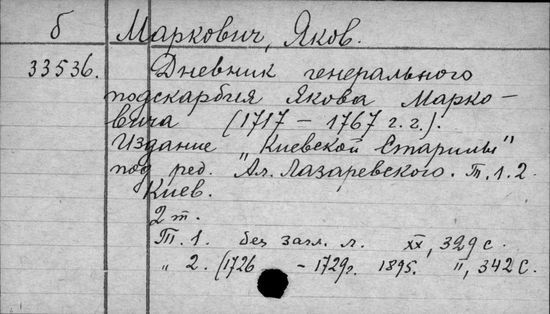 б Маркович, Яков.
33536. Дневник генерального
подскарбия Якова Марко-
вича (1717 – 1767 г.г.).
Издание „Киевской Старины"
под ред. Ал. Лазаревского. Т. 1. 2.
Киев.
2 т.
Т. 1. без загл. л. XX, 329 с.
„ 2. (1726 - 1729г. 1895. II, 342 с.